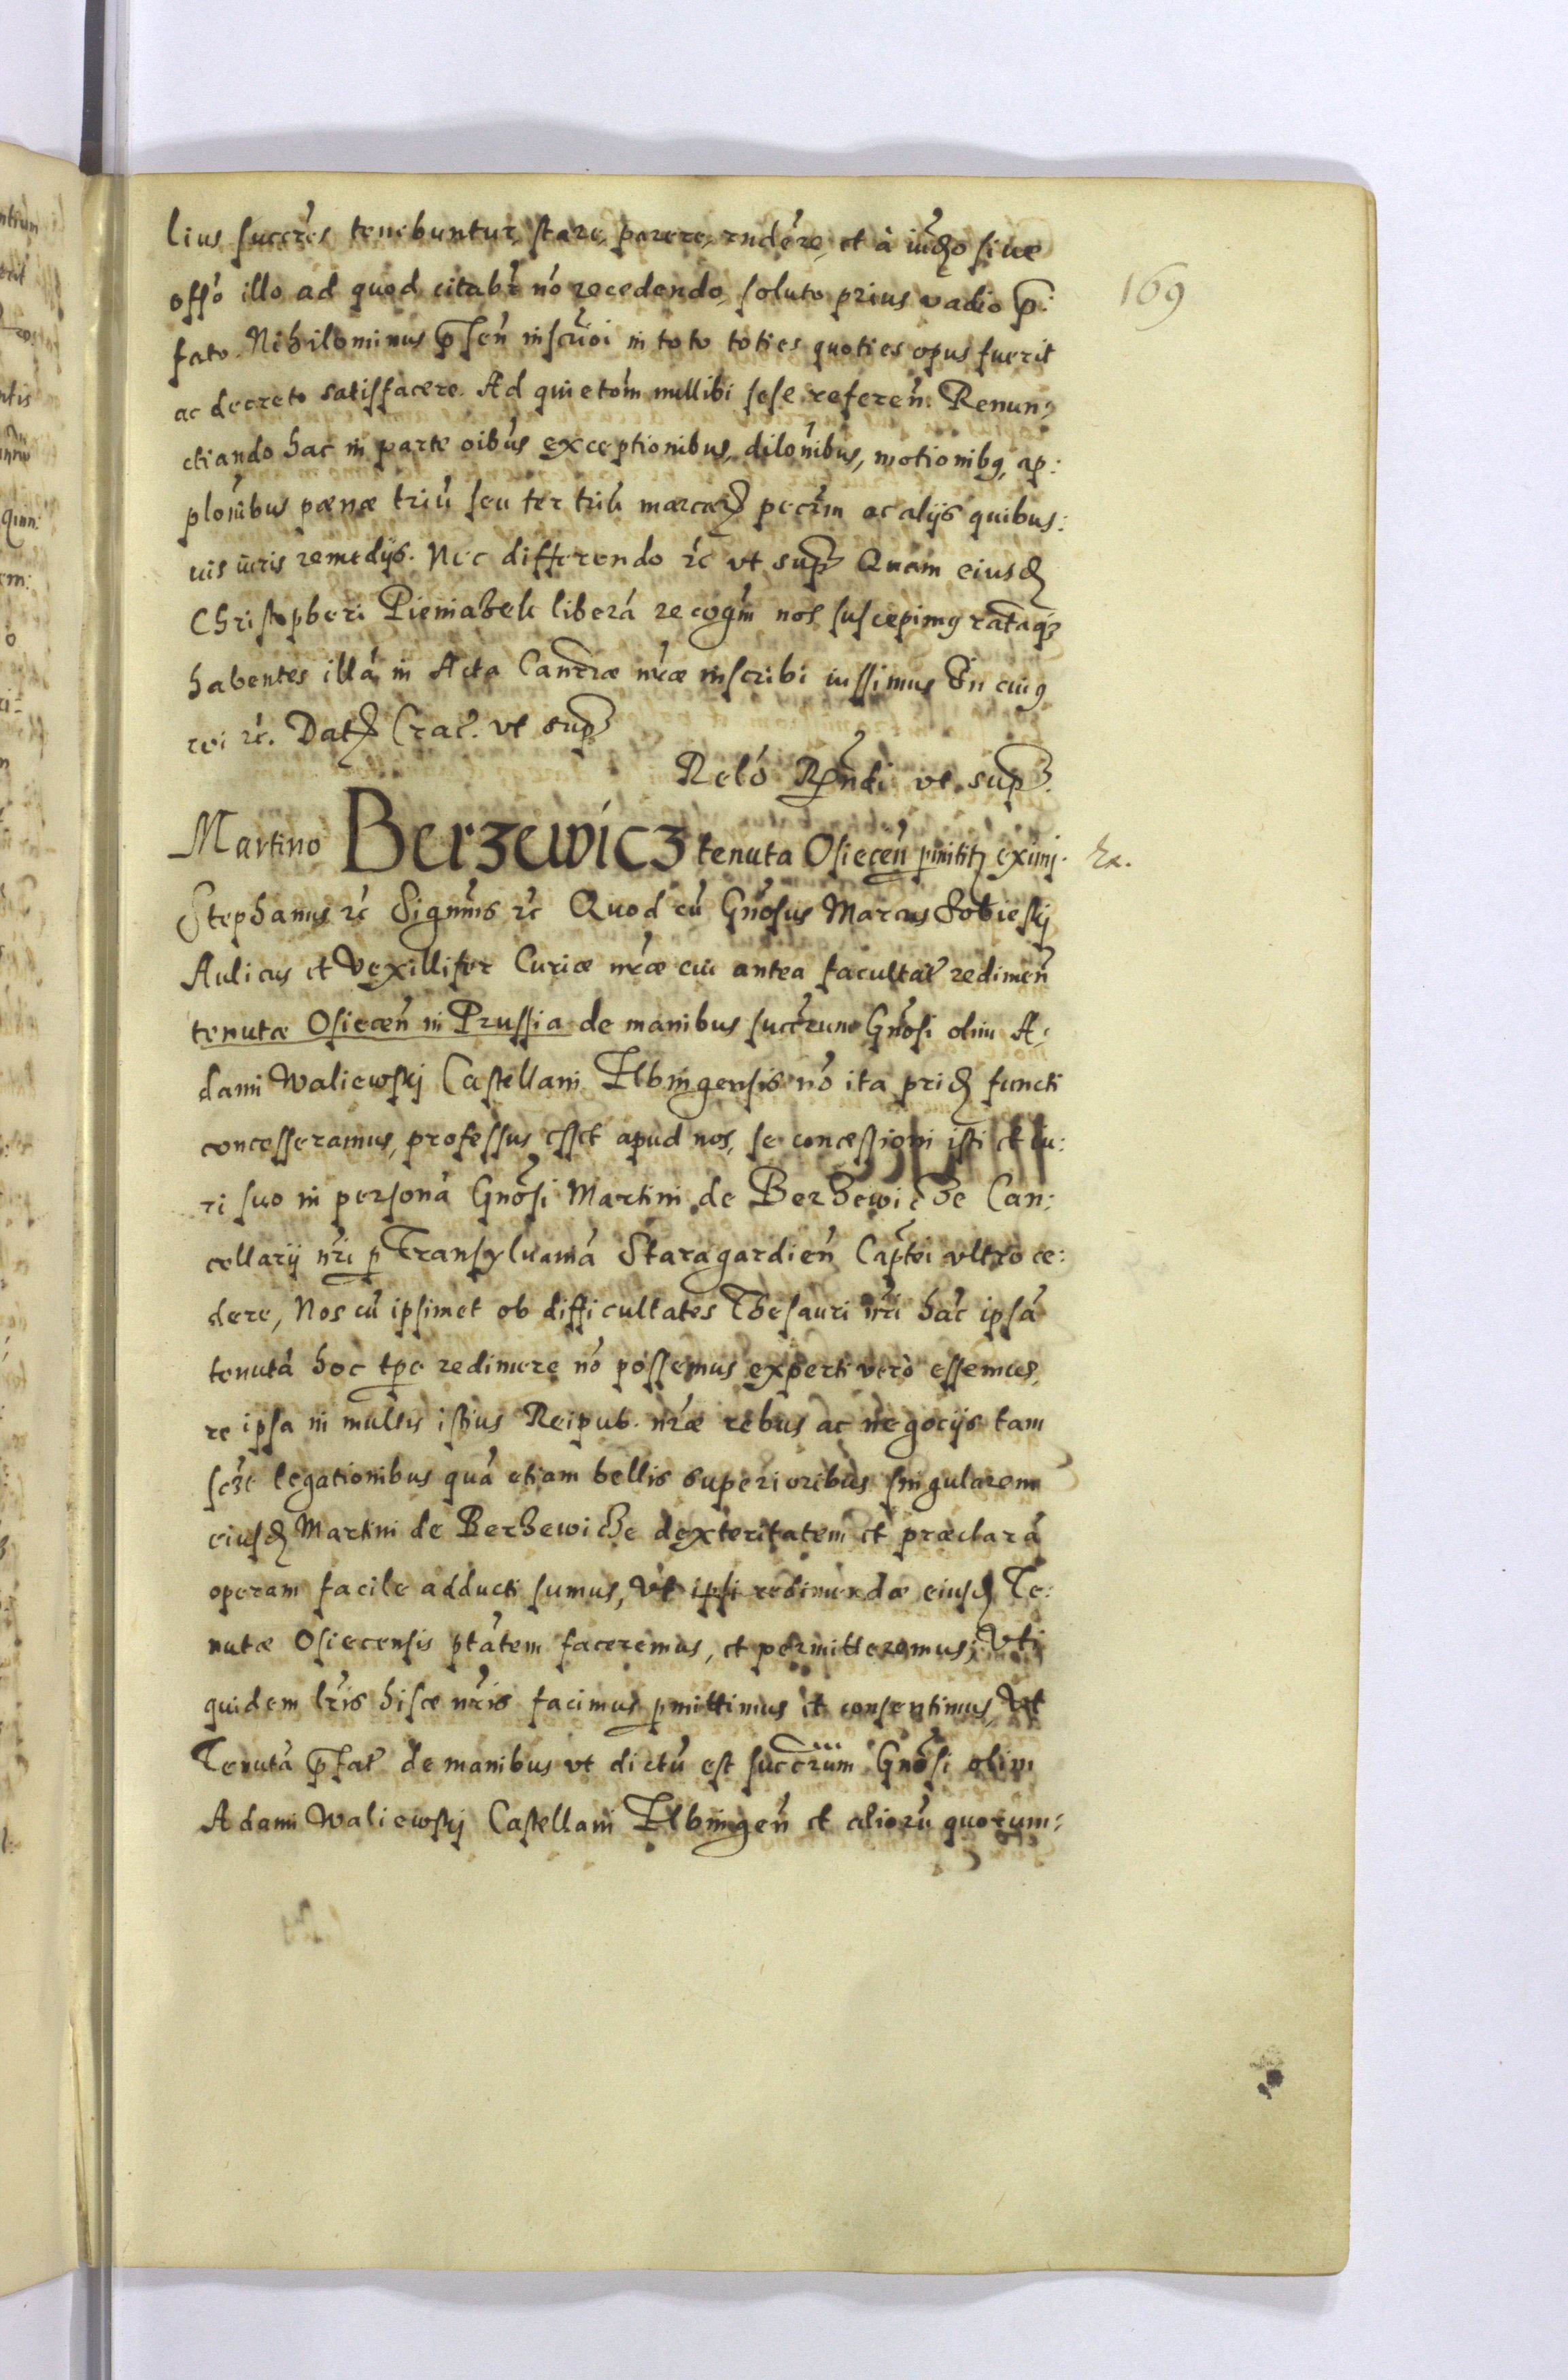 lius succres tenebuntur, stare, parere, rndére, et à iudo siue
169
offo illo ad quod citabr nó recedendo, soluto prius vadio p̄:
fato. Nihilominus p̄sen inscroi in toto toties quoties opus fuerit
ac decreto satisfacere. Ad quietóm nullibi sese referen. Renun=
ctiando hac in parte oibus exceptionibus, dilonibus, motionibq, ap:
plonibus pœnæ triu seu ter triu marcar pecrm ac alijs quibus:
uis iuris remedijs. Nec differendo rc vt sup Quam eiusd
Christopheri Pieniazek liberá recogm nos suscepimq ratáqz
habentes illá in Acta Cancræ nræ inscribi iussimus In cuiq
rei rc. Dat Crac. vt sup
Relo Rndi vt sup.
Martino Berzewicz tenuta Osiecen pmittit eximj. ha.
Stephanus rc Signmus rc Quod cu Gnosus Marcus Sobieskj
Aulicus et Vexillifer Curiæ nræ cui antea facultat redimen
tenutæ Osiecen in Prussia de manibus succrum Gnosi olim A:
dami Waliewskj Castellani Elbingensis nó ita prid functi
concesseramus, professus esset apud nos, se concessioni isti et iu:
ri suo in personá Gnosi Martini de Berzewicze Can:
cellarij nri p Transyluaniá Staragardien Captei vltro ce:
dere, Nos cu ipsimet ob difficultates Thesauri nri hác ipsá
tenutá hoc tpe redimere nó possemus experti verò essemus,
re ipsa in multis istius Reipub. nræ rebus ac negocijs tam
scze legationibus quá etiam bellis superioribus singularem
eiusd Martini de Berzewicze dexteritatem et præclará
operam facile adducti sumus, vt ipsi redimendæ eiusd Te:
nutæ Osiecensis ptátem faceremus, et permitteremus; Vti
quidem lris hisce nris facimus pmittimus et consentimus, Vt
Tenutá p̄fat de manibus vt dictu est succrum Gnosi olim
Adami Waliewskj Castellani Elbingen et alioru quorum=